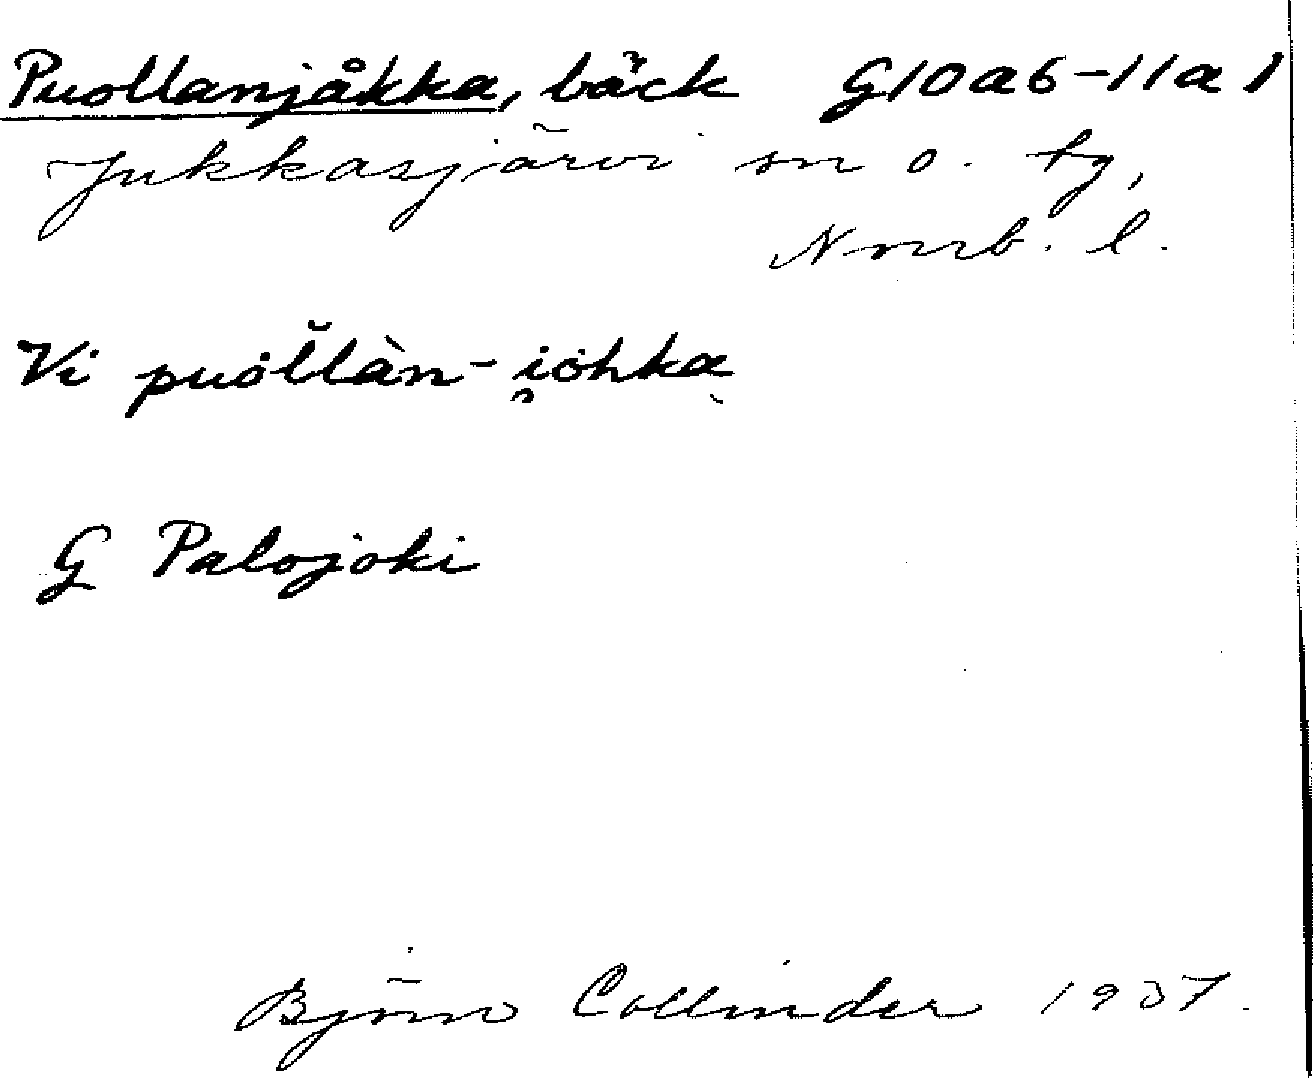 Puollanjåkka, bäck G10a6-11a1
Jukkasjärvi sn o. tg,
Norrb. l.
Vi puol̆làn-i̯ohka
G Palojoki
Björn Collinder 1937.